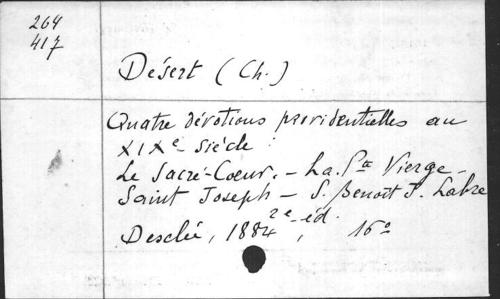 264
417
Désert (Ch.)
Quatre dévotions providentielles au
XIXe siècle :
Le Sacré-Coeur. - La Ste Vierge -
Saint Joseph - S. Benoît J. Labre
2e éd.
Desclée, 1884, 16º